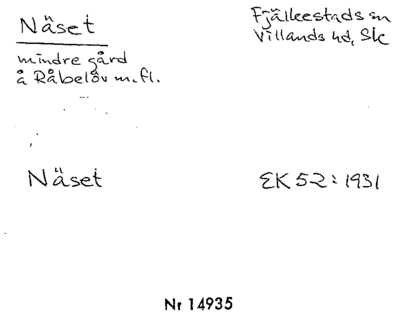 Näset
Fjälkestads sn
Villands hd, Sk
mindre gård
å Råbelöv m.fl.
Näset
EK 52:1931
Nr 14935